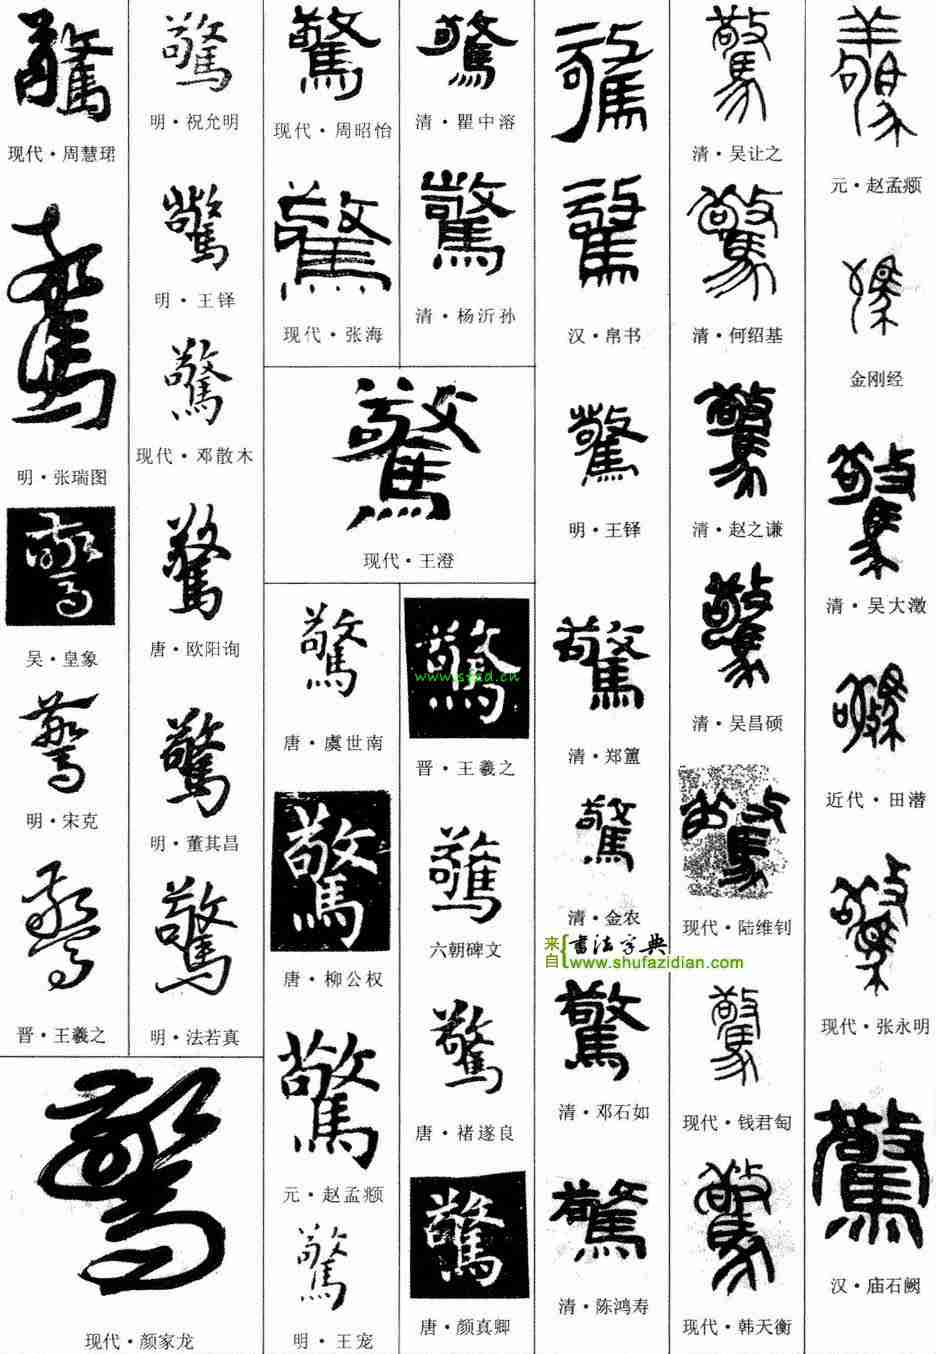 驚
现代·周慧珺
驚
明·张瑞图
驚
吴·皇象
驚
明·宋克
驚
晋·王羲之
驚
现代·颜家龙
驚
明·祝允明
驚
明·王铎
驚
现代·邓散木
驚
唐·欧阳询
驚
明·董其昌
驚
明·法若真
驚
现代·周昭怡
驚
现代·张海
驚
现代·王澄
驚
唐·虞世南
驚
唐·柳公权
驚
元·赵孟頫
驚
明·王宠
驚
清·瞿中溶
驚
清·杨沂孙
驚
www.sfzd.cn
晋·王羲之
驚
六朝碑文
驚
唐·褚遂良
驚
唐·颜真卿
驚
驚
汉·帛书
驚
明·王铎
驚
清·郑簠
驚
清·金农
来自 書法字典
www.shufazidian.com
驚
清·邓石如
驚
清·陈鸿寿
驚
清·吴让之
驚
清·何绍基
驚
清·赵之谦
驚
清·吴昌硕
驚
现代·陆维钊
驚
现代·钱君匋
驚
现代·韩天衡
驚
元·赵孟頫
驚
金刚经
驚
清·吴大澂
驚
近代·田潜
驚
现代·张永明
驚
汉·庙石阙